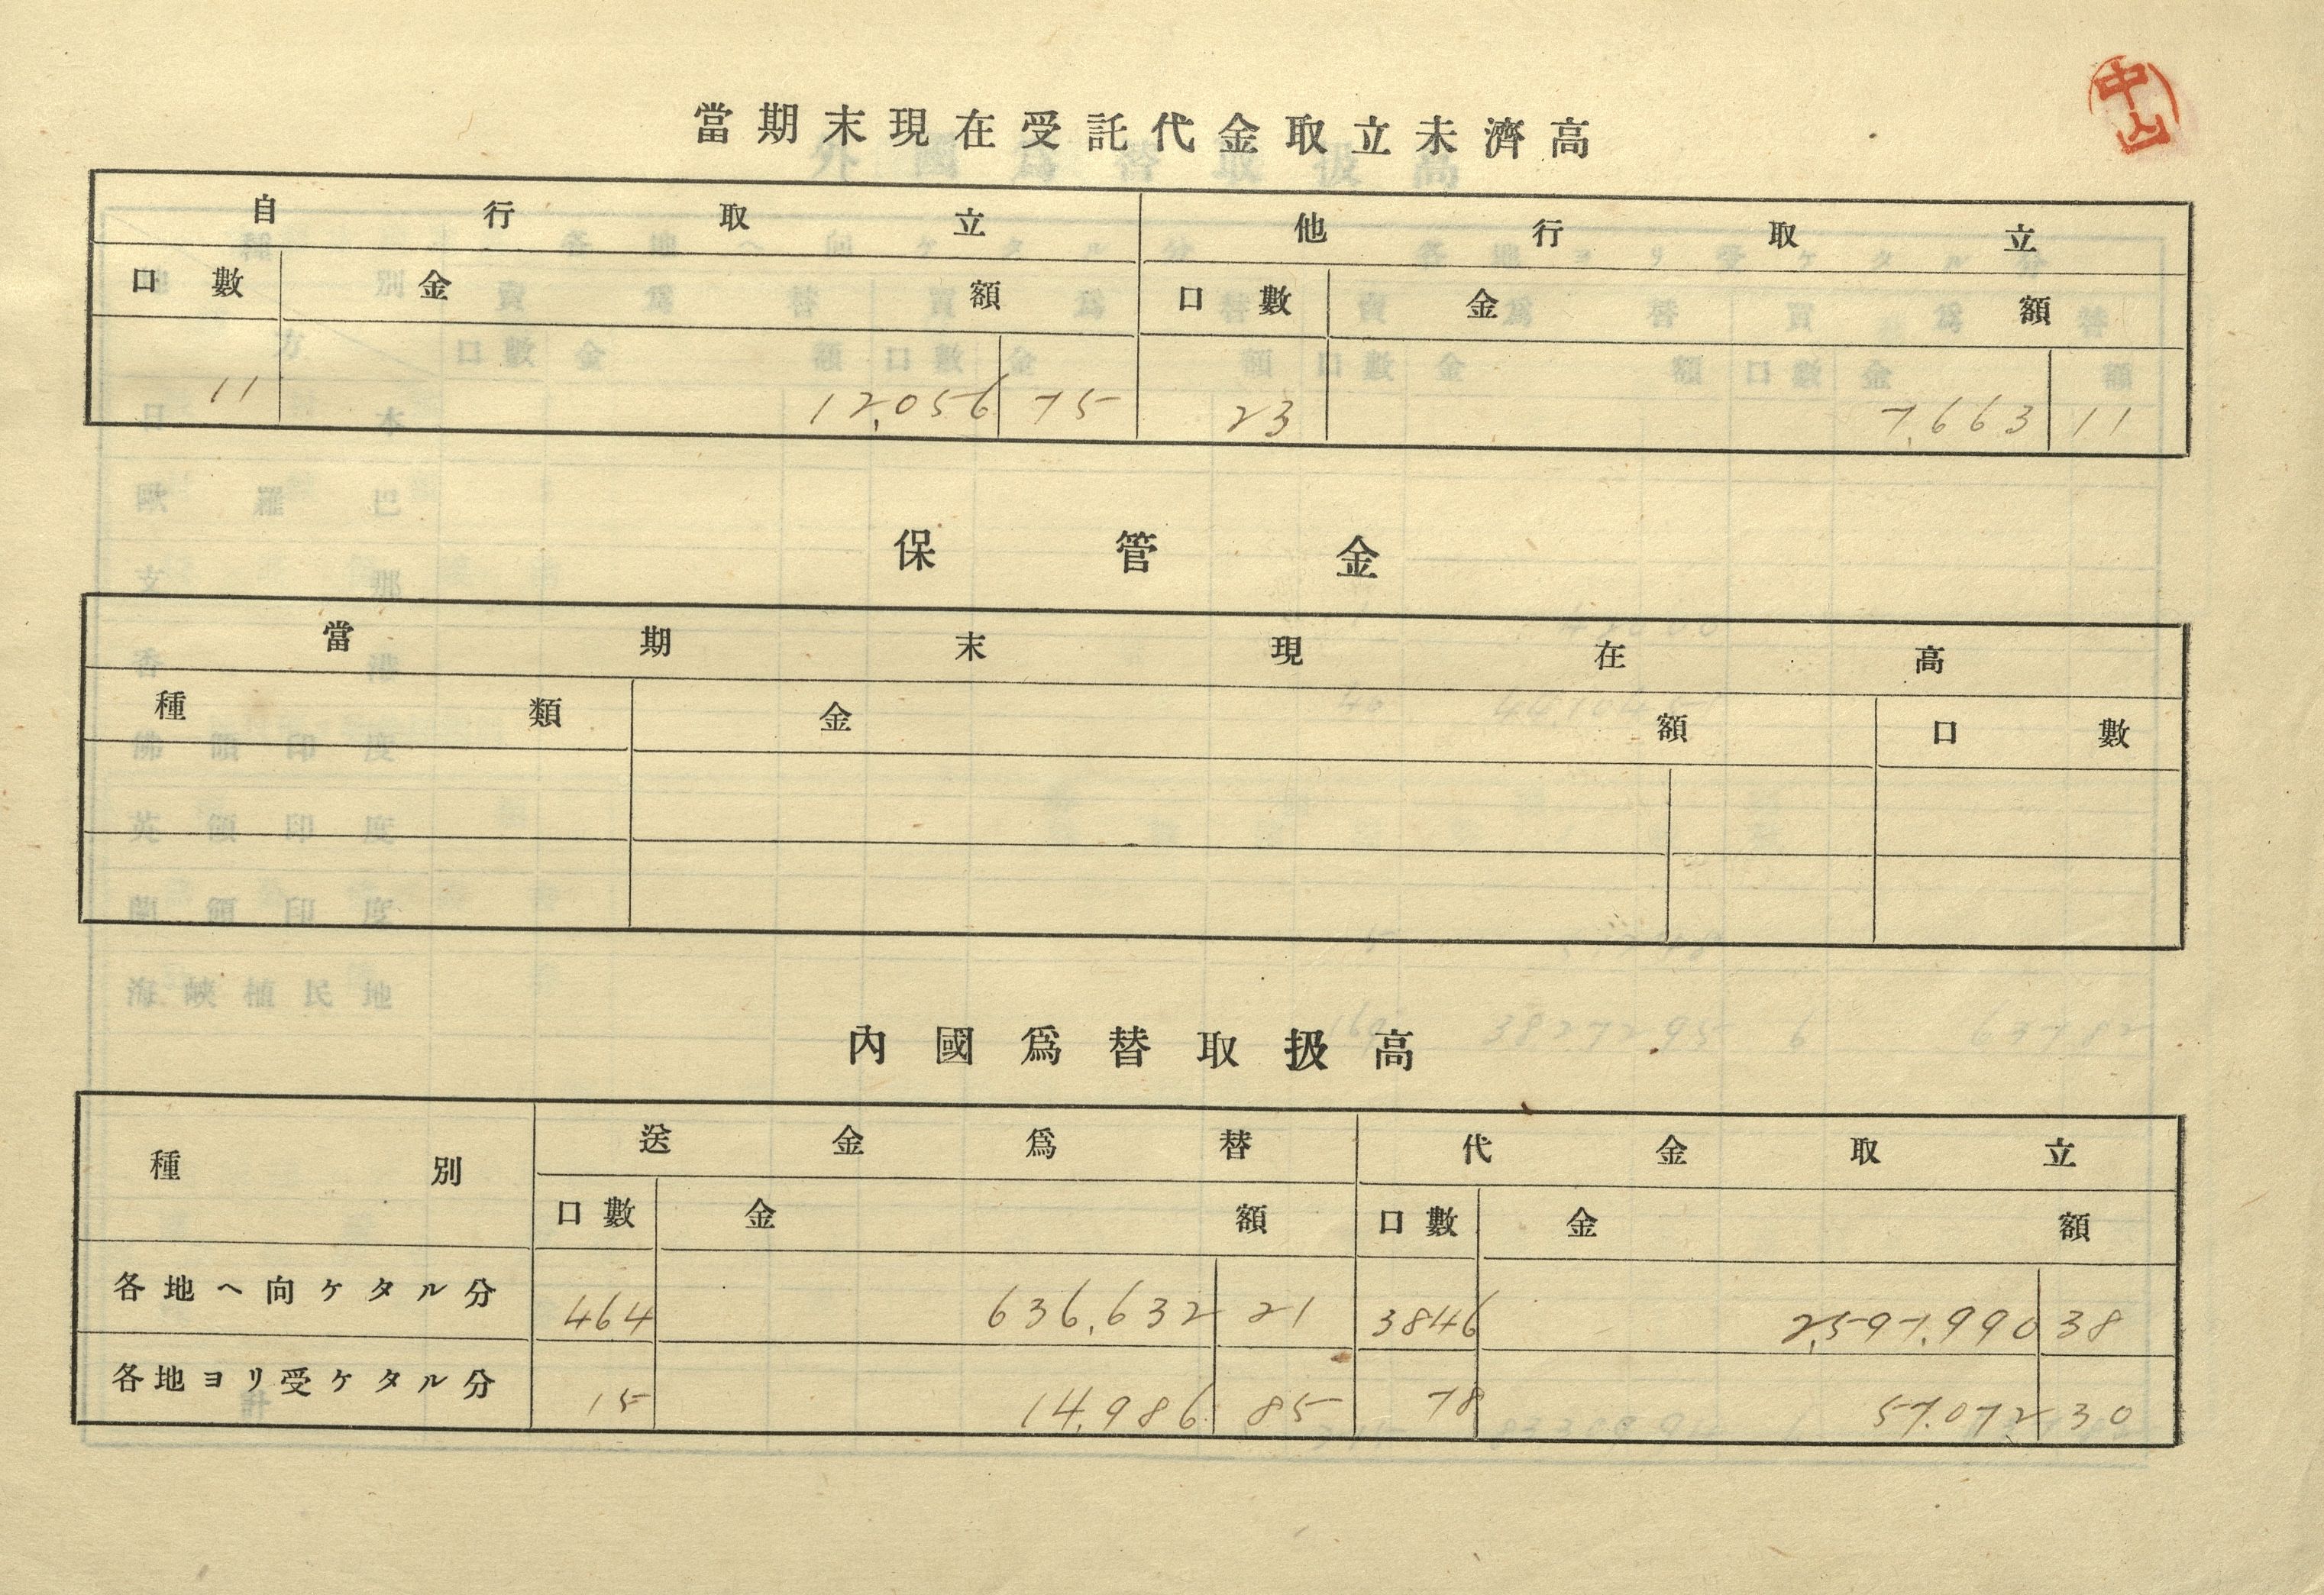 中山
當期末現在受託代金取立未濟高
自行取立 他行取立
口數 金額 口數 金額
11 12,056 75 23 7,663 11
保管金
當期末現在高
種類 金額 口數
內國爲替取扱高
種別 送金爲替 代金取立
口數 金額 口數 金額
各地ヘ向ケタル分 464 636,632 21 3846 2,597,990 38
各地ヨリ受ケタル分 15 14,986 85 78 57,072 30